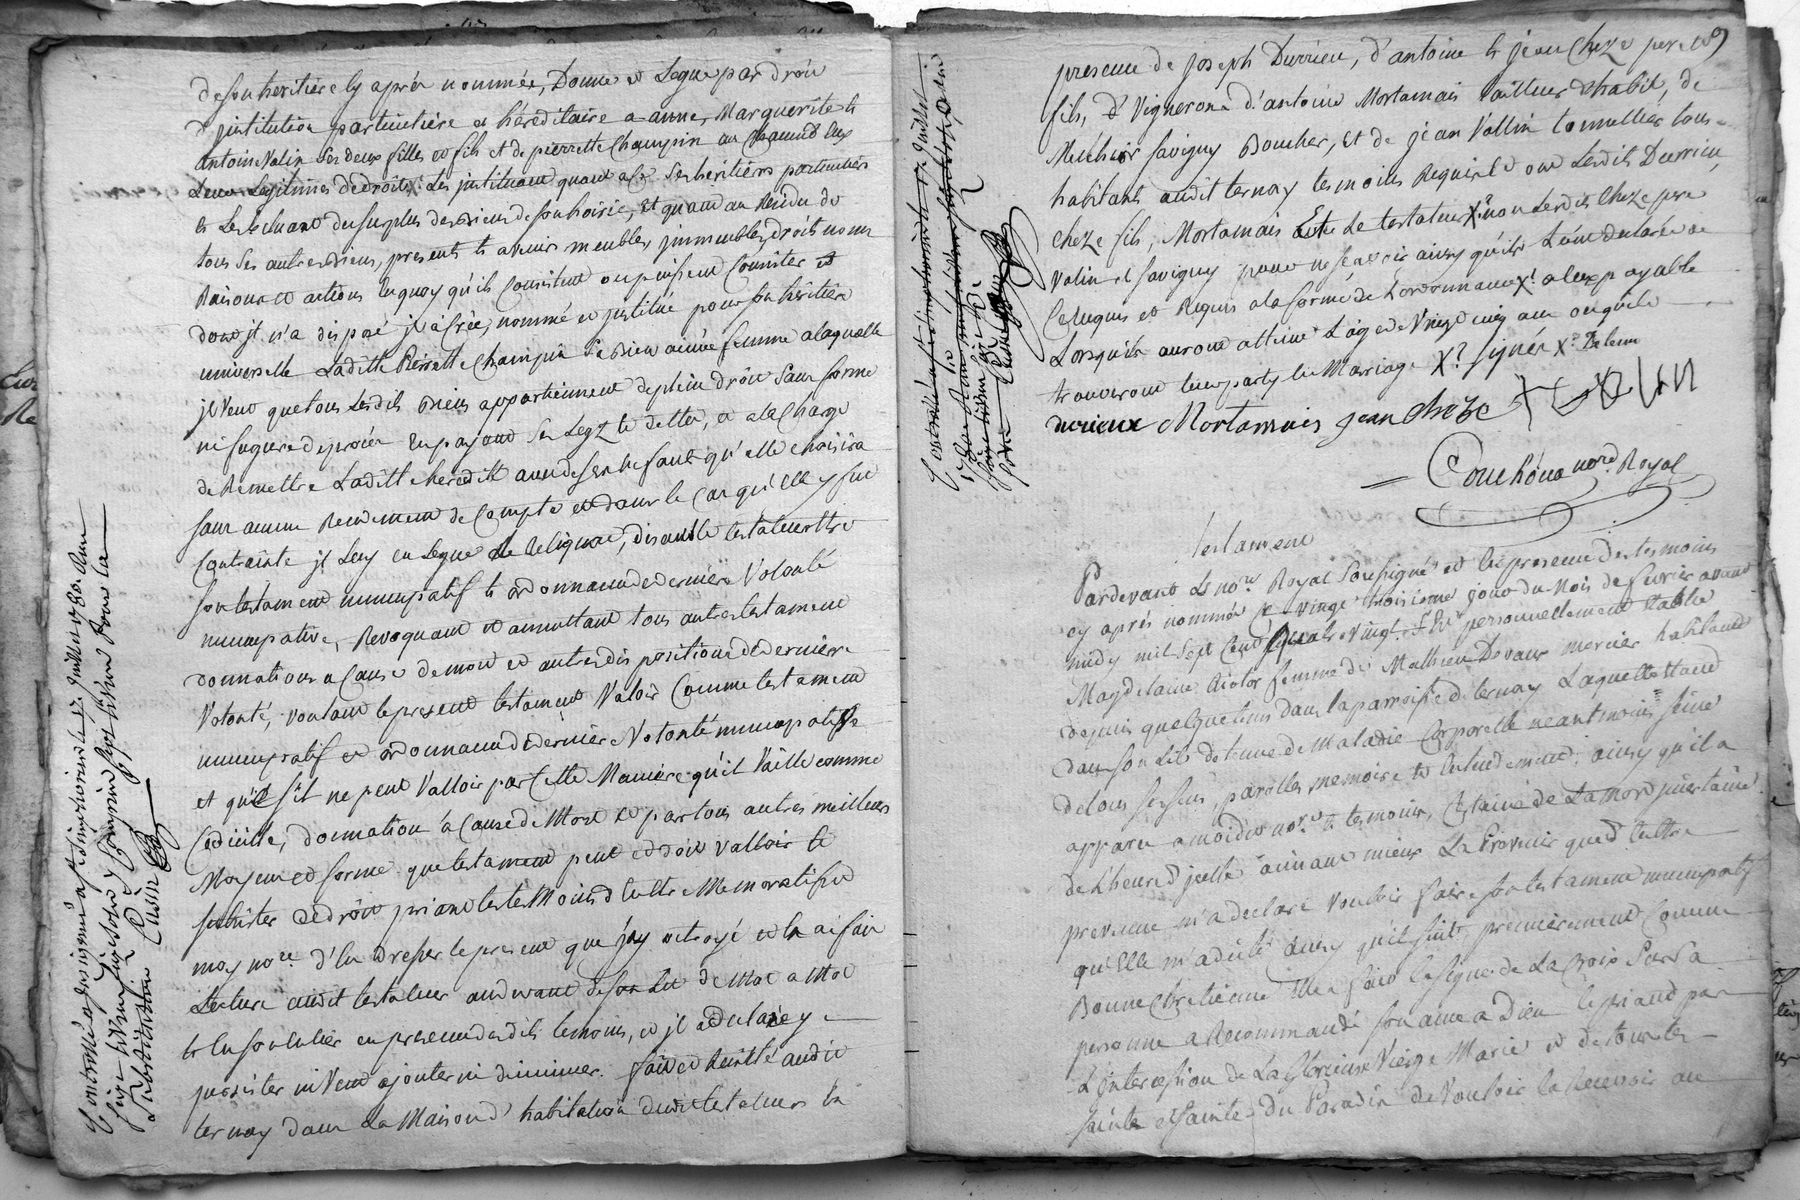 de son heritiere cy aprés nommée, Donne et Legue par droit
d'jnstitution particuliére et héréditaire a anne, Marguerite et
antoine Valin ses deux filles et fils et de pierrette Champin au chacund eux
Leurs Legitimes de droits X. Les jnstituant quant a ce ses heritiers particuliers
et Les excluant du surplus des Biens de son hoirie, Et quand au Residu de
tous ses autres biens, presents et avenir meubles, jmmeubles, droits noms
Raisons et actions en quoy qu'ils Consistent ou puissent Consister et
dont jl n'a disposé jl a Crée, nommé et jnstitué pour son heritiére
universelle Laditte Pierrette Champin Sa Bien aimée femme a laquelle
jl Veut que tous Lesdits Biens appartiennent de plein droit Sans forme
ni figure de procés En payant ses Legs et dettes, et a la Charge
de Remettre Laditte heredité aun de ses enfants qu'elle choisira
sans aucun Rendement de Compte et dans le Cas qu'elle y fut
Contrainte jl Luy en Legue Le Reliquat, disant le testateur être
son testament nuncupatif et ordonnance de derniére Volonté
nuncupative, Revoquant et annullant tous autres testament
donnations a Cause de mort et autres dispositions de derniére
Volonté, voulant le present testament Valoir Comme testament
nuncupatif et ordonnance de derniére Volonté nuncupative
et que s'il ne peut Valloir par Cette Maniére qu'il Vaille comme
Codicille, donnation a Cause de Mort et par tous autres meilleurs
Moyens et forme que testament peut et doit valloir et
subsister de droit priant les témoins d'en être Memoratifs et
moy no.re d'en dresser le present que j'ay octroyé et en ai fait
Lecture audit testateur au devant de son Lit de Mot a Mot
et en son entier en presence desdits temoins, et jl a declaré y
persister ni Veut ajouter ni diminuer. fait et Recitté audit
ternay dans La Maison d'habitation dudit testateur En
Controllé a Simphorien le 17 Juillet 1780. Reçu
substitution Cusin
presence de joseph Durrieu, d'antoine et jean Cheze pere et
fils, Vignerons d'antoine Mortamais tailleur d'habit, de
Melchior Savigny Boucher, Et de jean Vallin tonnellier tous
habitants audit ternay temoins Requis et ont Lesdits Durrieu
cheze fils, Mortamais et Le testateur X.: non Lesdits Cheze pere
Valin et Savigny pour ne sçavoir ainsy qu'ils L'ont declaré de
Ce enquis et Requis a la forme de L'ordonnance X.: a eux payable
Lorsqu'ils auront atteint L'age de Vingt cinq ans ou qu'ils
trouveront leur party En Marriage X.? signés X.:
durieux Mortamais jean cheze
Couchoud no.re Royal
testament
Pardevant Le no.re Royal soussigné et En presence des temoins
cy aprés nommés Ce vingt troisieme jour du Mois de fevrier avant
midy mil sept Cent quatre vingt, a Eté personnellement Etablie
Magdelaine femme de Mathieu Devaux mercier habitant
depuis quelque tems dans la parroisse de ternay Laquelle étant
dans son Lit détenue de Maladie Corporelle neantmoins seine
de tous ses sens, parolles, memoire et Entendement, ainsy qu'il a
apparu a moidit no.re et temoins, Certaine de La mort jncertaine
de L'heure d'jcelle aimant mieux La Prevenir que d'en être
prevenue m'a declaré Vouloir faire son testament nuncupatif
qu'Elle m'a dicté ainsy qu'il suit. premierement Comme
Bonne Chretienne Elle a fait le signe de La Croix sur sa
personne a Recommandé son ame a Dieu le priant par
L'Intercession de La Glorieuse Vierge Marie et de tous les
saints et saintes du Paradis de Vouloir la Recevoir au